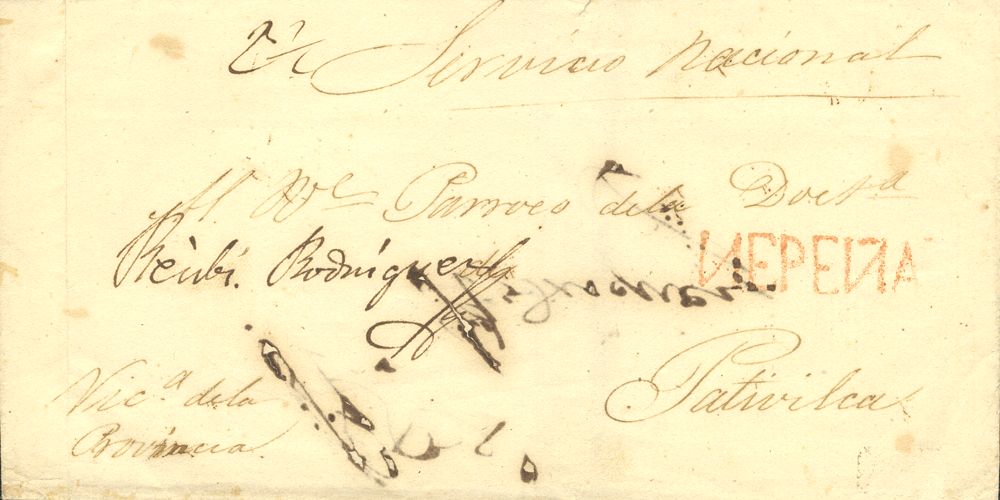 Servicio Nacional
Al Ve Parroco de la Doctª
Recibi. Rodriguez
NEPEÑA
Pativilca
Vicª de la
Provincia.